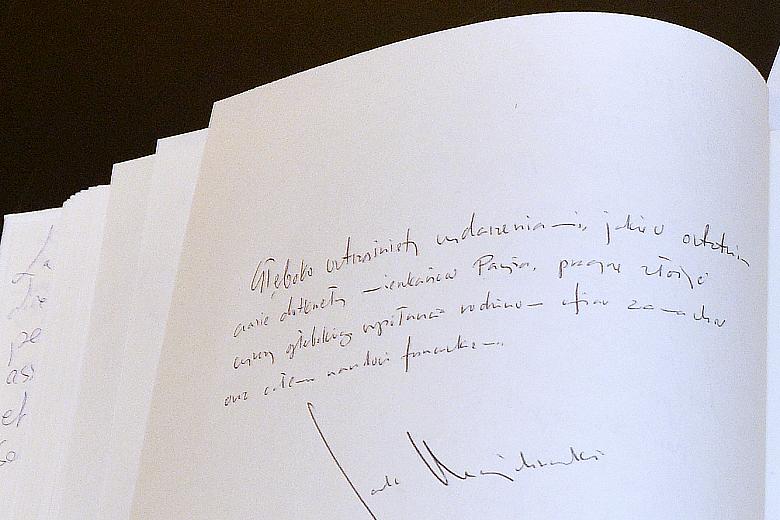 Głęboko wstrząśnięty wydarzeniami, jakie w ostatnim
czasie dotknęły mieszkańców Paryża, pragnę złożyć
wyrazy głębokiego współczucia rodzinom ofiar zamachów
oraz całemu narodowi francuskiemu.
La
pe
ass
et